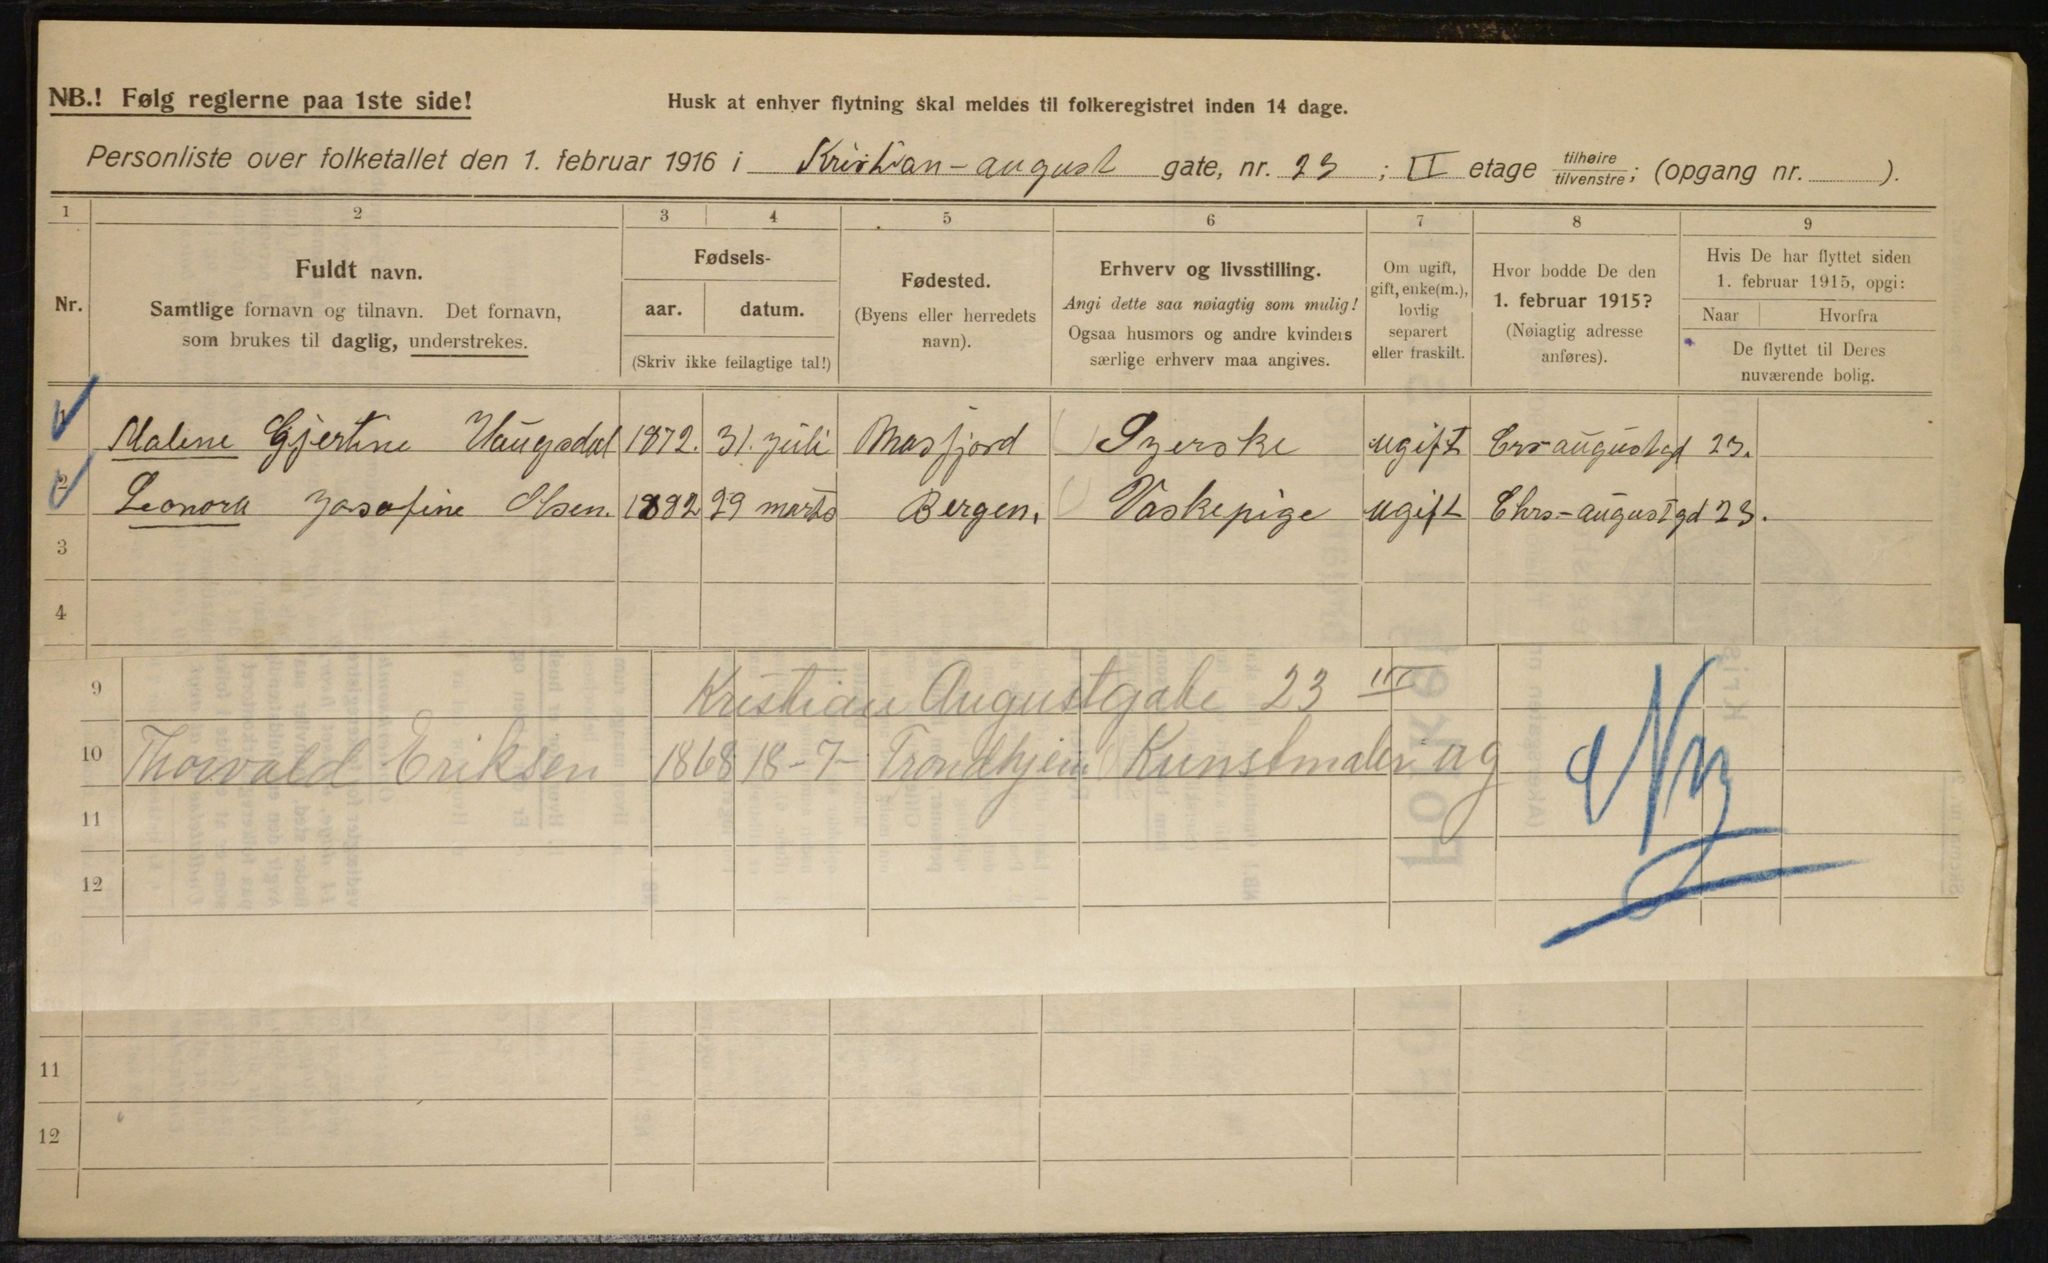 NB.! Følg reglerne paa 1ste side!
Husk at enhver flytning skal meldes til folkeregistret inden 14 dage.
Personliste over folketallet den 1. februar 1916 i Kristian-august gate, nr. 23; II etage tilhøire/tilvenstre; (opgang nr. ).
1 2 3 4 5 6 7 8 9
Nr.
Fuldt navn.
Samtlige fornavn og tilnavn. Det fornavn,
som brukes til daglig, understrekes.
Fødsels-
aar. datum.
(Skriv ikke feilagtige tal!)
Fødested.
(Byens eller herredets
navn).
Erhverv og livsstilling.
Angi dette saa nøiagtig som mulig!
Ogsaa husmors og andre kvinders
særlige erhverv maa angives.
Om ugift,
gift, enke(m.),
lovlig
separert
eller fraskilt.
Hvor bodde De den
1. februar 1915?
(Nøiagtig adresse
anføres).
Hvis De har flyttet siden
1. februar 1915, opgi:
Naar Hvorfra
De flyttet til Deres
nuværende bolig.
1 Malene Gjertine Haugsdal 1872. 31. juli Masfjord Syerske ugift Crs augustgd 23.
2 Leonora Josefine Olsen. 1882 29 marts Bergen. Vaskepige ugift Chrs-augustgd 23.
3
4
9 Kristian Augustgate 23 III
10 Thorvald Eriksen 1868 18-7- Trondhjem Kunstmaler ug
11
12
11
12